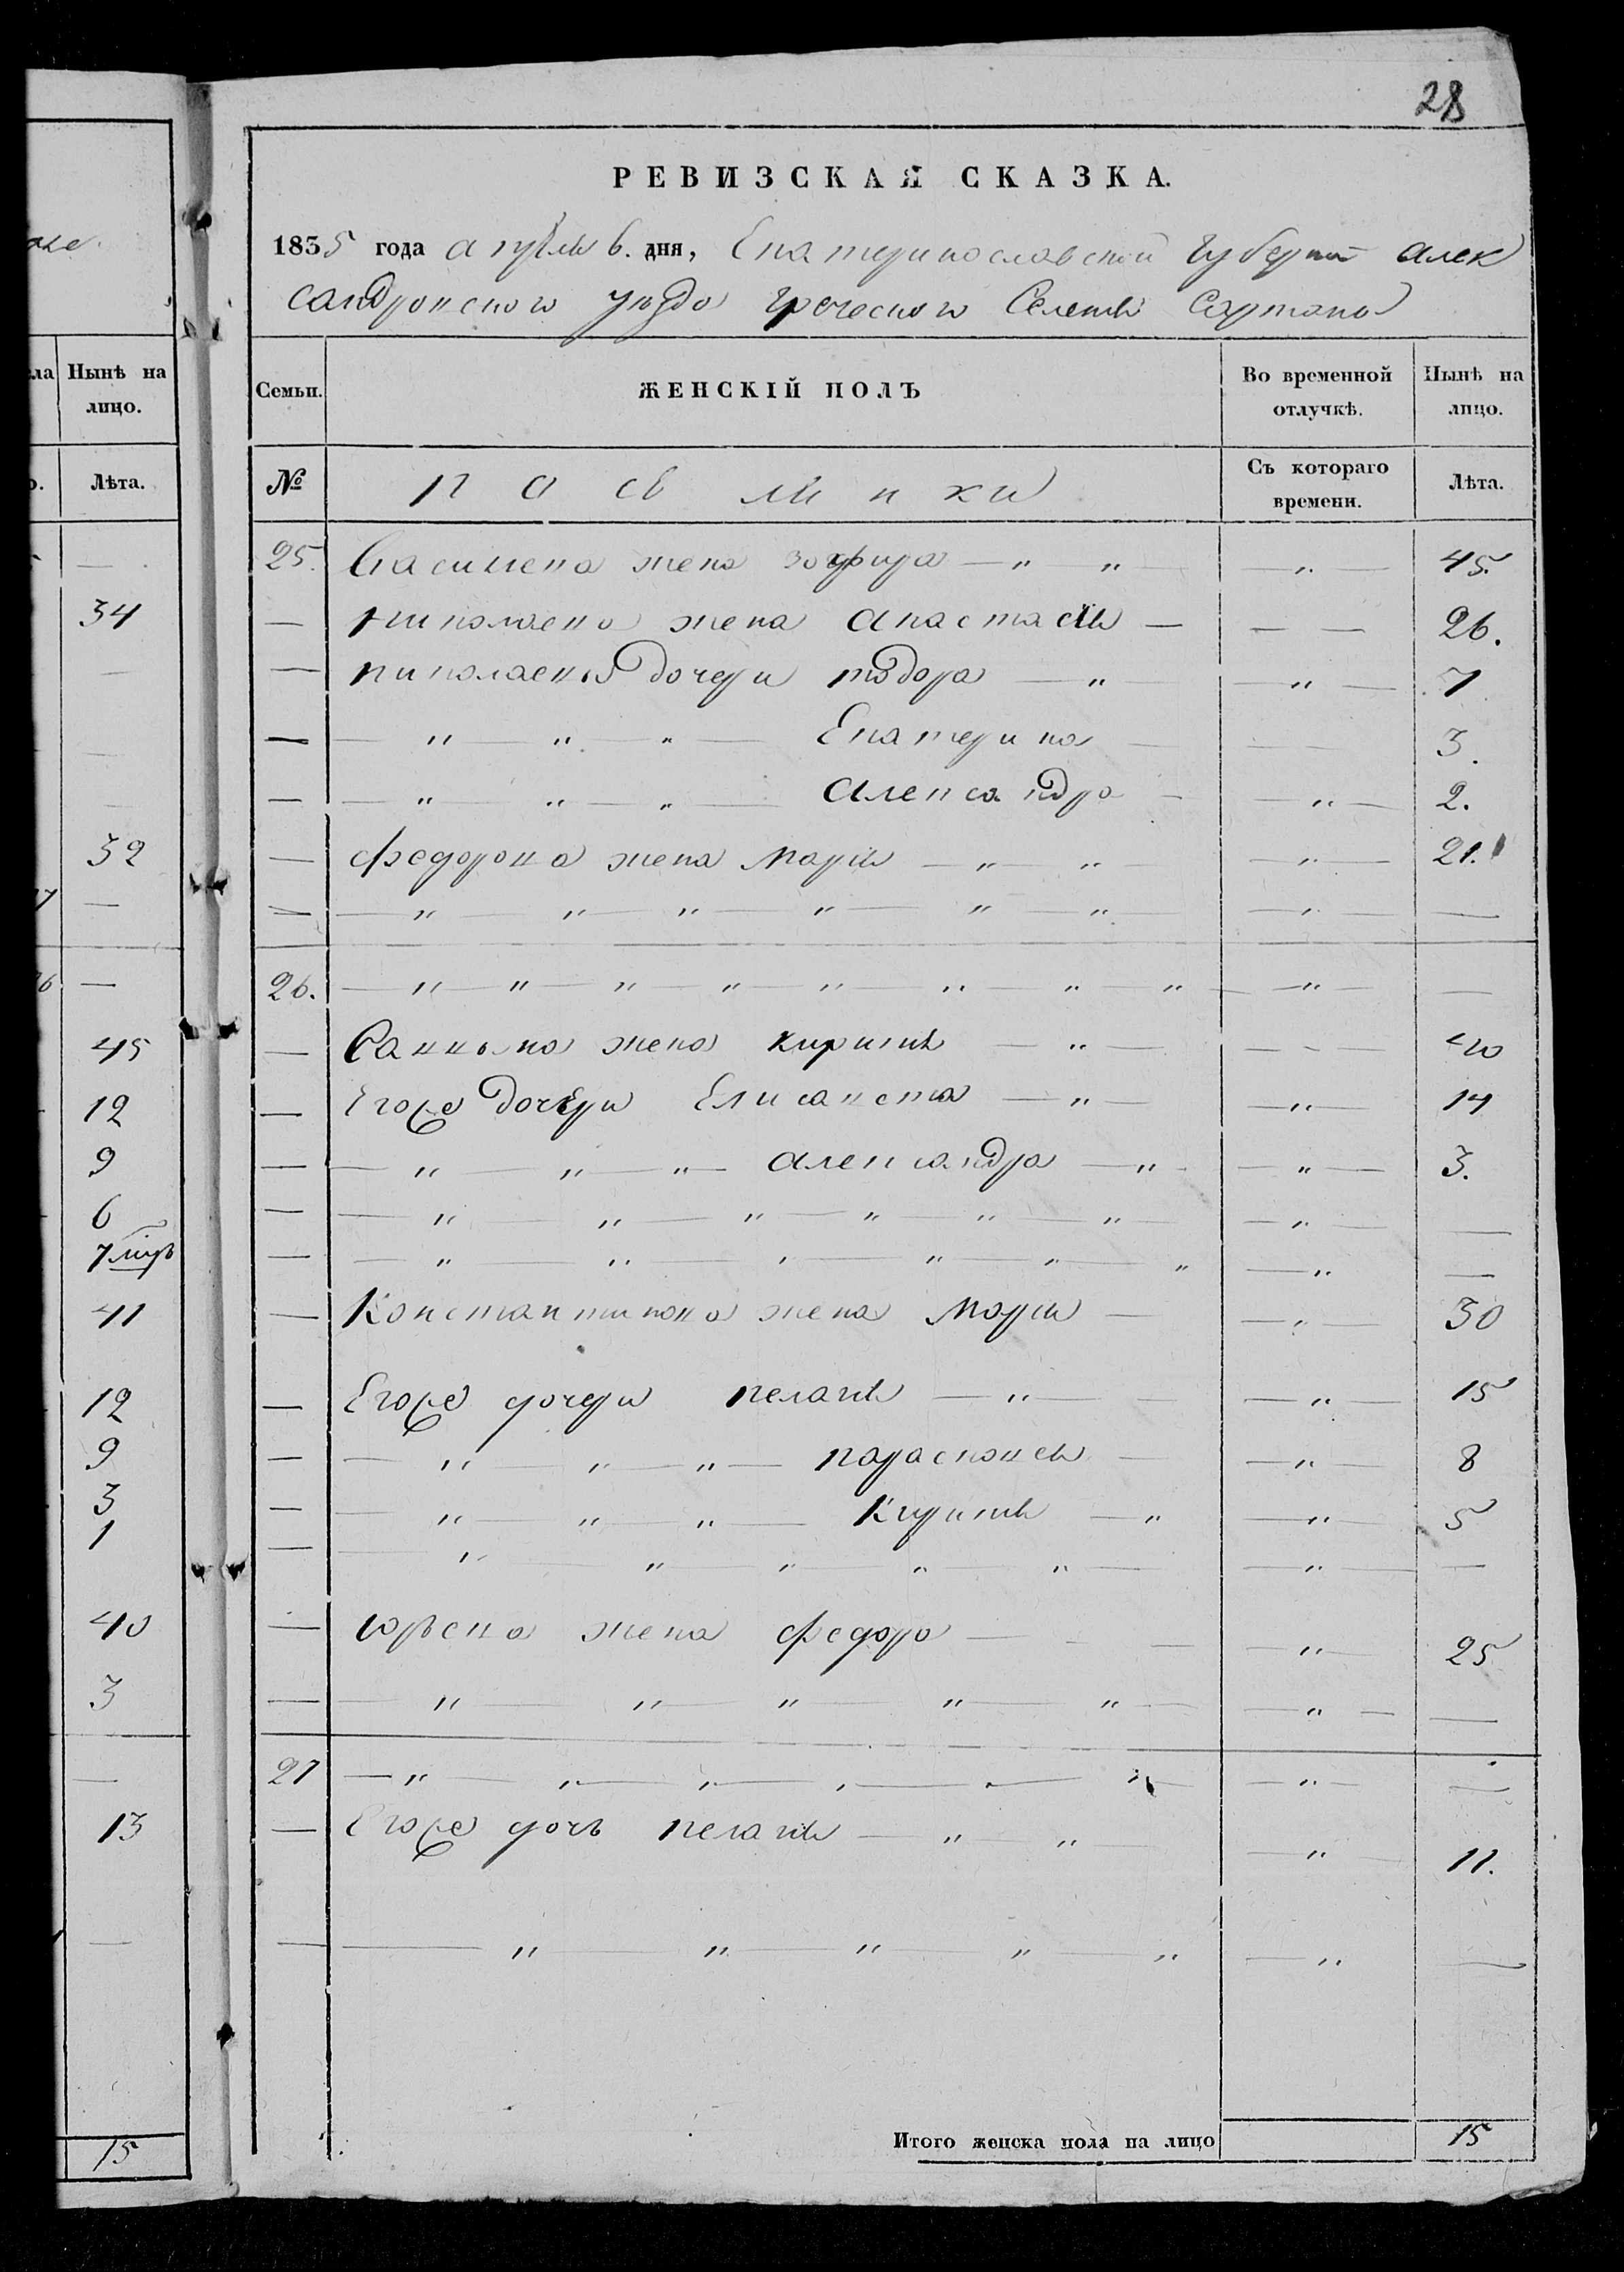 28
РЕВИЗСКАЯ СКАЗКА.
1835 года апреля 6. дня, Екатеринославской губернии Алек
сандровского уезда греческого Селения Сартаны
Семьи. ЖЕНСКІЙ ПОЛЪ Во временной отлучкѣ. Нынѣ на лицо.
№ поселянки Съ котораго времени. Лѣта.
25. Василева жена — " " — — " — 45.
— Николаева жена Анастасия — — — 26.
— Николаевы дочери тодора — " — " — 7
— — " — " — " — Екатерина — — — 3.
— — " — " — " — Александра — — " — 2.
— Федорова жена Мария — " — " — " — 21.
— — " — " — " — " — " — " — — " — —
26. — " — " — " — " — " — " — " — " — — " — —
— жена кириакия — " — — — 40
— Егора дочери Елисавета — " — — " — 14
— — " — " — " — александра — " — — " — 3.
— — " — " — " — " — " — " — — " — —
— — " — " — " — " — " — " — " —
— Константинова жена Мария — — " — 30
— Егора дочери пелагия — " — — — " — 15
— — " — " — " — парасковея — — " — 8
— — " — " — " — Кириакия — " — " — 5
— — " — " — " — " — " — — " — —
— юрьева жена федора — — — — " — 25
— — " — " — " — " — " — — " — —
27 — " — " — " — " — " — " — — " — —
— Егора дочь пелагия — " — " — — " — 11.
— — " — " — " — " — " — " — —
Итого женска пола на лицо 15
ла Нынѣ на лицо.
Лѣта.
—
34
—
—
—
32
—
—
45
12
9
6
41
12
9
3
1
40
3
—
13
—
15